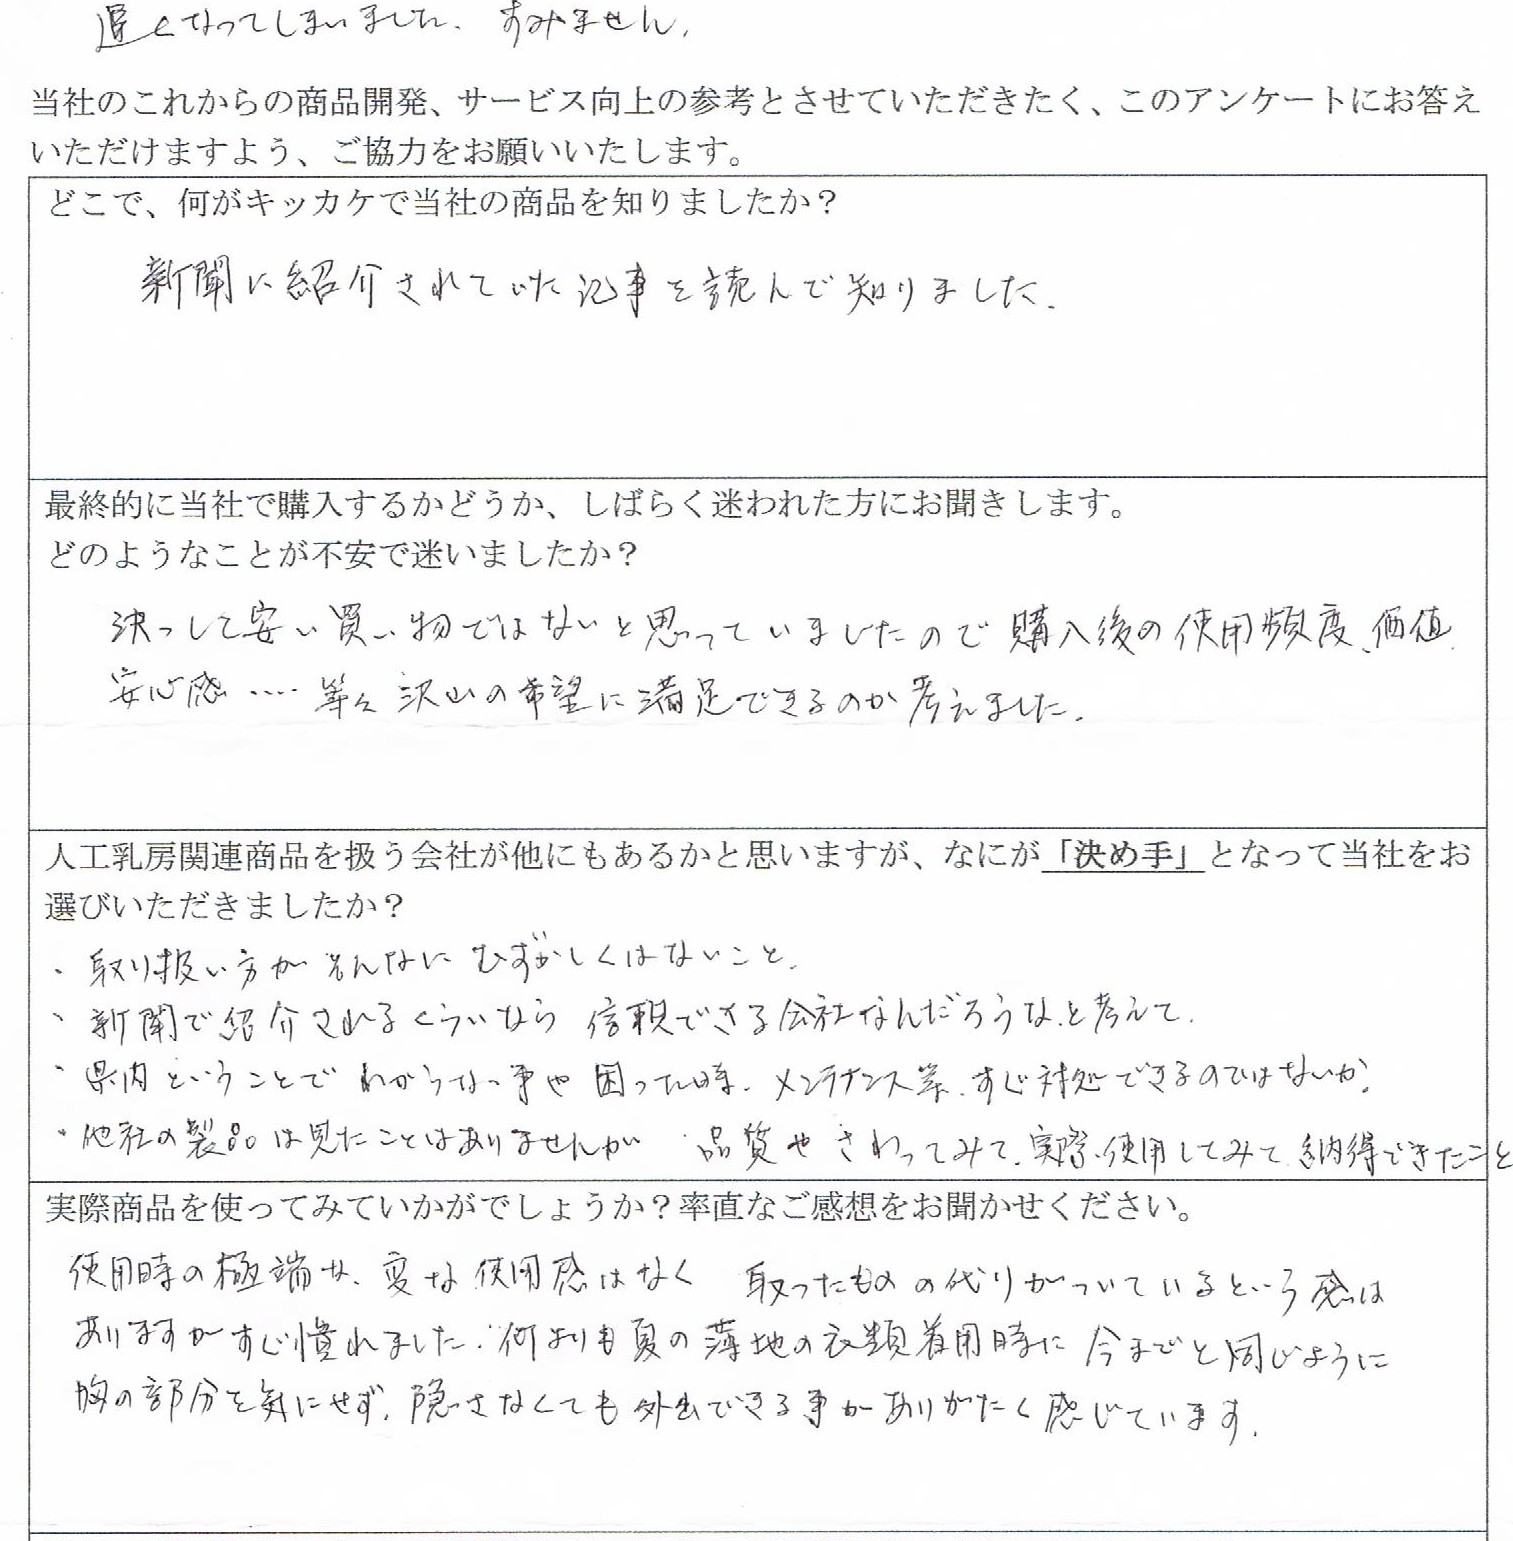 遅くなってしまいました. すみません.
当社のこれからの商品開発、サービス向上の参考とさせていただきたく、このアンケートにお答え
いただけますよう、ご協力をお願いいたします。
どこで、何がキッカケで当社の商品を知りましたか？
新聞に紹介されていた記事を読んで知りました.
最終的に当社で購入するかどうか、しばらく迷われた方にお聞きします。
どのようなことが不安で迷いましたか？
決っして安い買い物ではないと思っていましたので購入後の使用頻度、価値
安心感 ‥‥ 等々 沢山の希望に満足できるのか考えました.
人工乳房関連商品を扱う会社が他にもあるかと思いますが、なにが「決め手」となって当社をお
選びいただきましたか？
・取り扱い方がそんなにむずかしくはないこと.
・新聞で紹介されるくらいなら 信頼できる会社なんだろうな.と考えて.
・県内ということで わからない事や 困った時. メンテナンス等. すぐ対処できるのではないか.
・他社の製品は見たことはありませんが 品質やさわってみて. 実際、使用してみて 納得できたこと
実際商品を使ってみていかがでしょうか？率直なご感想をお聞かせください。
使用時の極端な、変な使用感はなく 取ったものの代りがついているという感は
ありますがすぐ慣れました. 何よりも夏の薄地の衣類着用時に 今までと同じように
胸の部分を気にせず. 隠さなくても外出できる事がありがたく感じています.